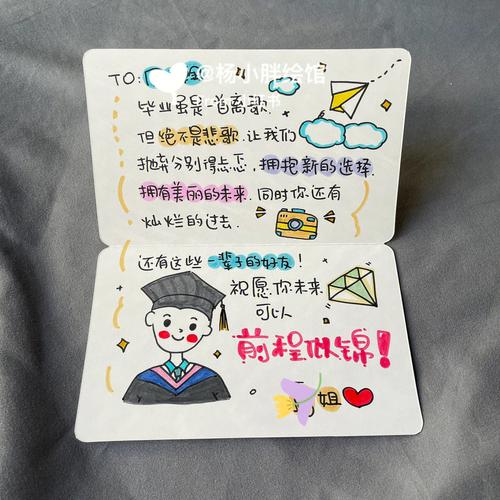 TO:
@杨小胖绘馆
毕业虽是一首离歌.
但绝不是悲歌.让我们
抛弃分别得忐忑,拥抱新的选择.
拥有美丽的未来.同时你还有
灿烂的过去.
还有这些一辈子的好友!
祝愿你未来
可以
前程似锦!
姐